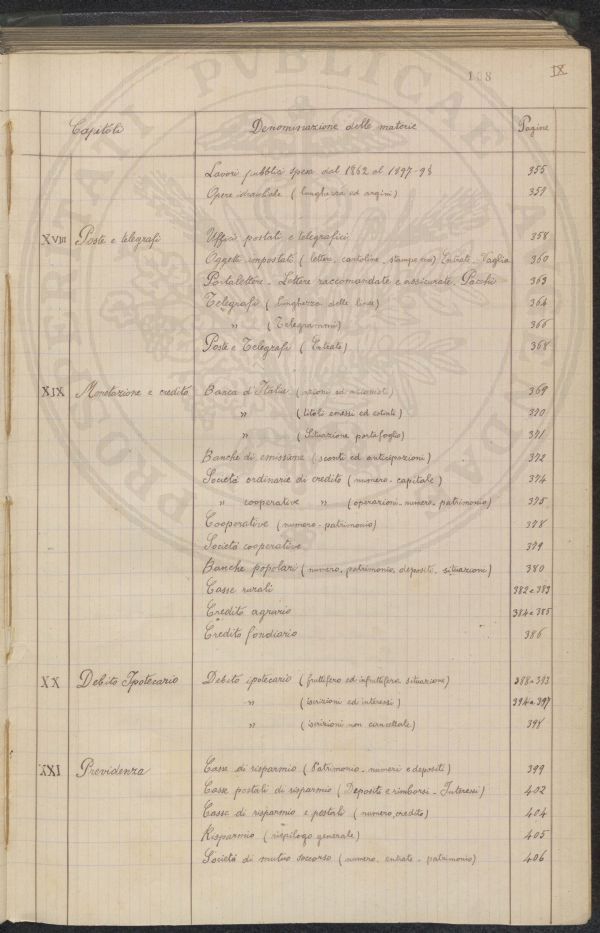 188
IX
Capitoli Denominazione delle materie Pagine
Lavori pubblici spesa dal 1862 al 1897-98 355
Opere idrauliche (lunghezza ed argini) 357
XVIII Poste e telegrafi Uffici postali e telegrafici 358
Oggetti impostati (lettere, cartoline, stampe ecc) Entrate - Vaglia 360
Portalettere - Lettere raccomandate e assicurate. Pacchi 363
Telegrafi (lunghezza delle linee) 364
" (Telegrammi) 366
Poste e Telegrafi (Entrate) 368
XIX Monetazione e credito Banca d'Italia (azioni ed azionisti) 369
" (titoli emessi ed estinti) 370
" (Situazione portafoglio) 371
Banche di emissione (sconti ed anticipazioni) 372
Società ordinarie di credito (numero - capitale) 374
" cooperative " (operazioni - numero - patrimonio) 375
Cooperative (numero - patrimonio) 378
Società cooperative 379
Banche popolari (numero, patrimonio, depositi, situazioni) 380
Casse rurali 382 e 383
Credito agrario 384 e 385
Credito fondiario 386
XX Debito Ipotecario Debito ipotecario (fruttifero ed infruttifero situazione) 388 a 393
" (iscrizioni ed interessi) 394 a 397
" (iscrizioni non cancellate) 398
XXI Previdenza Casse di risparmio (Patrimonio - numeri e depositi) 399
Casse postali di risparmio (Depositi e rimborsi - Interessi) 402
Casse di risparmio e postali (numero, credito) 404
Risparmio (riepilogo generale) 405
Società di mutuo soccorso (numero, entrate - patrimonio) 406